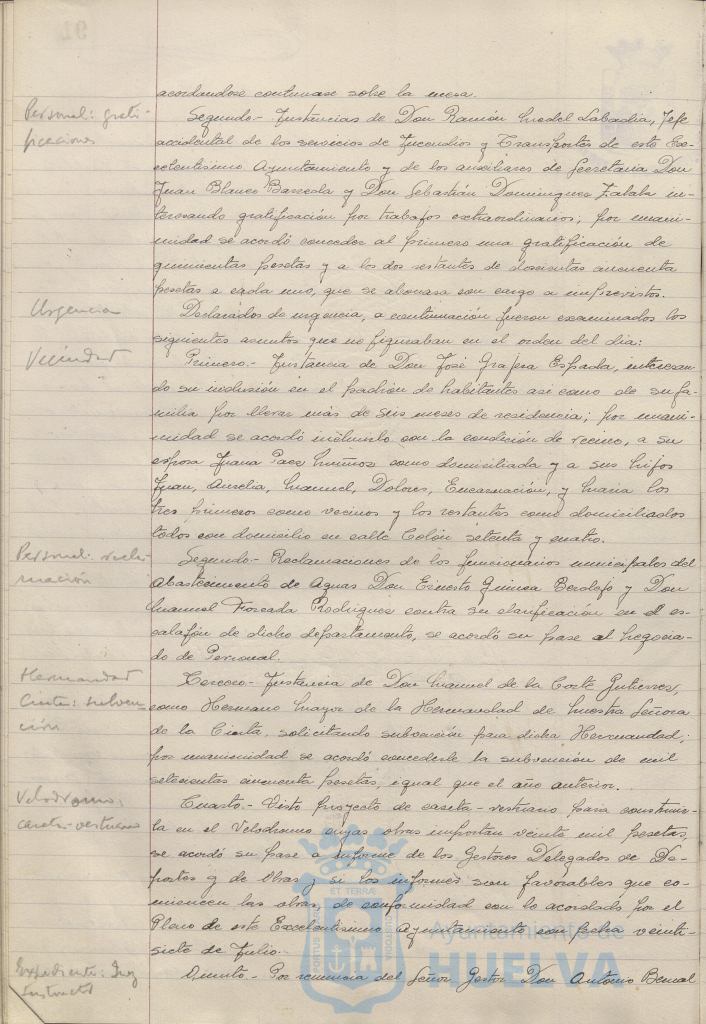 acordandose continuase sobre la mesa.
Personal: grati-
ficaciones
Segundo.- Instancias de Don Ramón Medel Labadia, Jefe
accidental de los servicios de Incendios y Transportes de este Ex-
celentísimo Ayuntamiento y de los auxiliares de Secretaria Don
Juan Blanco Barreda y Don Sebastián Dominguez Zabala in-
teresando gratificación por trabajos extraordinarios; por unani-
midad se acordó conceder al primero una gratificación de
quinientas pesetas y a los dos restantes de doscientas cincuenta
pesetas a cada uno, que se abonara con cargo a imprevistos.
Urgencia
Declarados de urgencia, a continuación fueron examinados los
siguientes asuntos que no figuraban en el orden del dia:
Vecindad
Primero.- Instancia de Don José Grajera Espada, interesan-
do su inclusión en el padrón de habitantes asi como de su fa-
milia por llevar más de seis meses de residencia; por unani-
midad se acordó incluirlo con la condición de vecino, a su
esposa Juana Paez Muñoz como domiciliada y a sus hijos
Juan, Aurelia, Manuel, Dolores, Encarnación, y Maria los
tres primeros como vecinos y los restantes como domiciliados
todos con domicilio en calle Colón setenta y cuatro.
Personal: recla-
mación
Segundo.- Reclamaciones de los funcionarios municipales del
Abastecimiento de Aguas Don Ernesto Guinea Berdejo y Don
Manuel Forcada Rodriguez contra su clasificación en el es-
calafón de dicho departamento, se acordó su pase al Negocia-
do de Personal.
Hermandad
Cinta: subven-
ción
Tercero.- Instancia de Don Manuel de la Corte Gutierrez,
como Hermano Mayor de la Hermandad de Nuestra Señora
de la Cinta, solicitando subvención para dicha Hermandad;
por unanimidad se acordó concederle la subvención de mil
setecientas cincuenta pesetas, igual que el año anterior.
Velodromo:
caseta-vestuario
Cuarto.- Visto proyecto de caseta-vestuario para construir-
la en el Velodromo cuyas obras importan veinte mil pesetas,
se acordó su pase a informe de los Gestores Delegados de De-
portes y de Obras y si los informes son favorables que co-
miencen las obras, de conformidad con lo acordado por el
Pleno de este Excelentisimo Ayuntamiento con fecha veinti-
siete de Julio.
Expediente: Juez
Instructor
Quinto.- Por renuncia del Señor Gestor Don Antonio Bernal
Ayuntamiento de
HUELVA